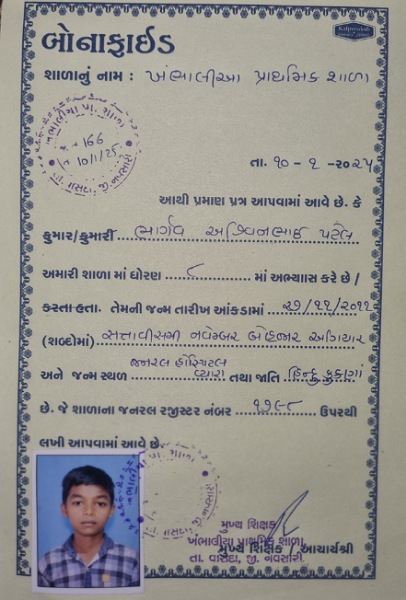 બોનાફાઈડ
શાળાનું નામ : ખંભાલીઆ પ્રાથમિક શાળા
ખંભાલીયા પ્રા. શાળા
166
10/1/25
તા. વાંસદા, જી. નવસારી
તા. ૧૦ - ૧ - ૨૦૨૫
આથી પ્રમાણ પત્ર આપવામાં આવે છે. કે
કુમાર/કુમારી ભાર્ગવ અશ્વિનભાઈ પટેલ
અમારી શાળા માં ધોરણ ૮ માં અભ્યાસ કરે છે /
કરતા હતા. તેમની જન્મ તારીખ આંકડામાં ૨૭/૧૧/૨૦૧૧
(શબ્દોમાં) સત્તાવીસમી નવેમ્બર બે હજાર અગિયાર
જનરલ હોસ્પિટલ
અને જન્મ સ્થળ વ્યારા તથા જાતિ હિન્દુ કુકણા
છે. જે શાળાના જનરલ રજીસ્ટર નંબર ૧૭૯૮ ઉપરથી
લખી આપવામાં આવે છે.
મુખ્ય શિક્ષક
ખંભાલીયા પ્રાથમિક શાળા,
મુખ્ય શિક્ષક / આચાર્યશ્રી
તા. વાંસદા, જી. નવસારી.